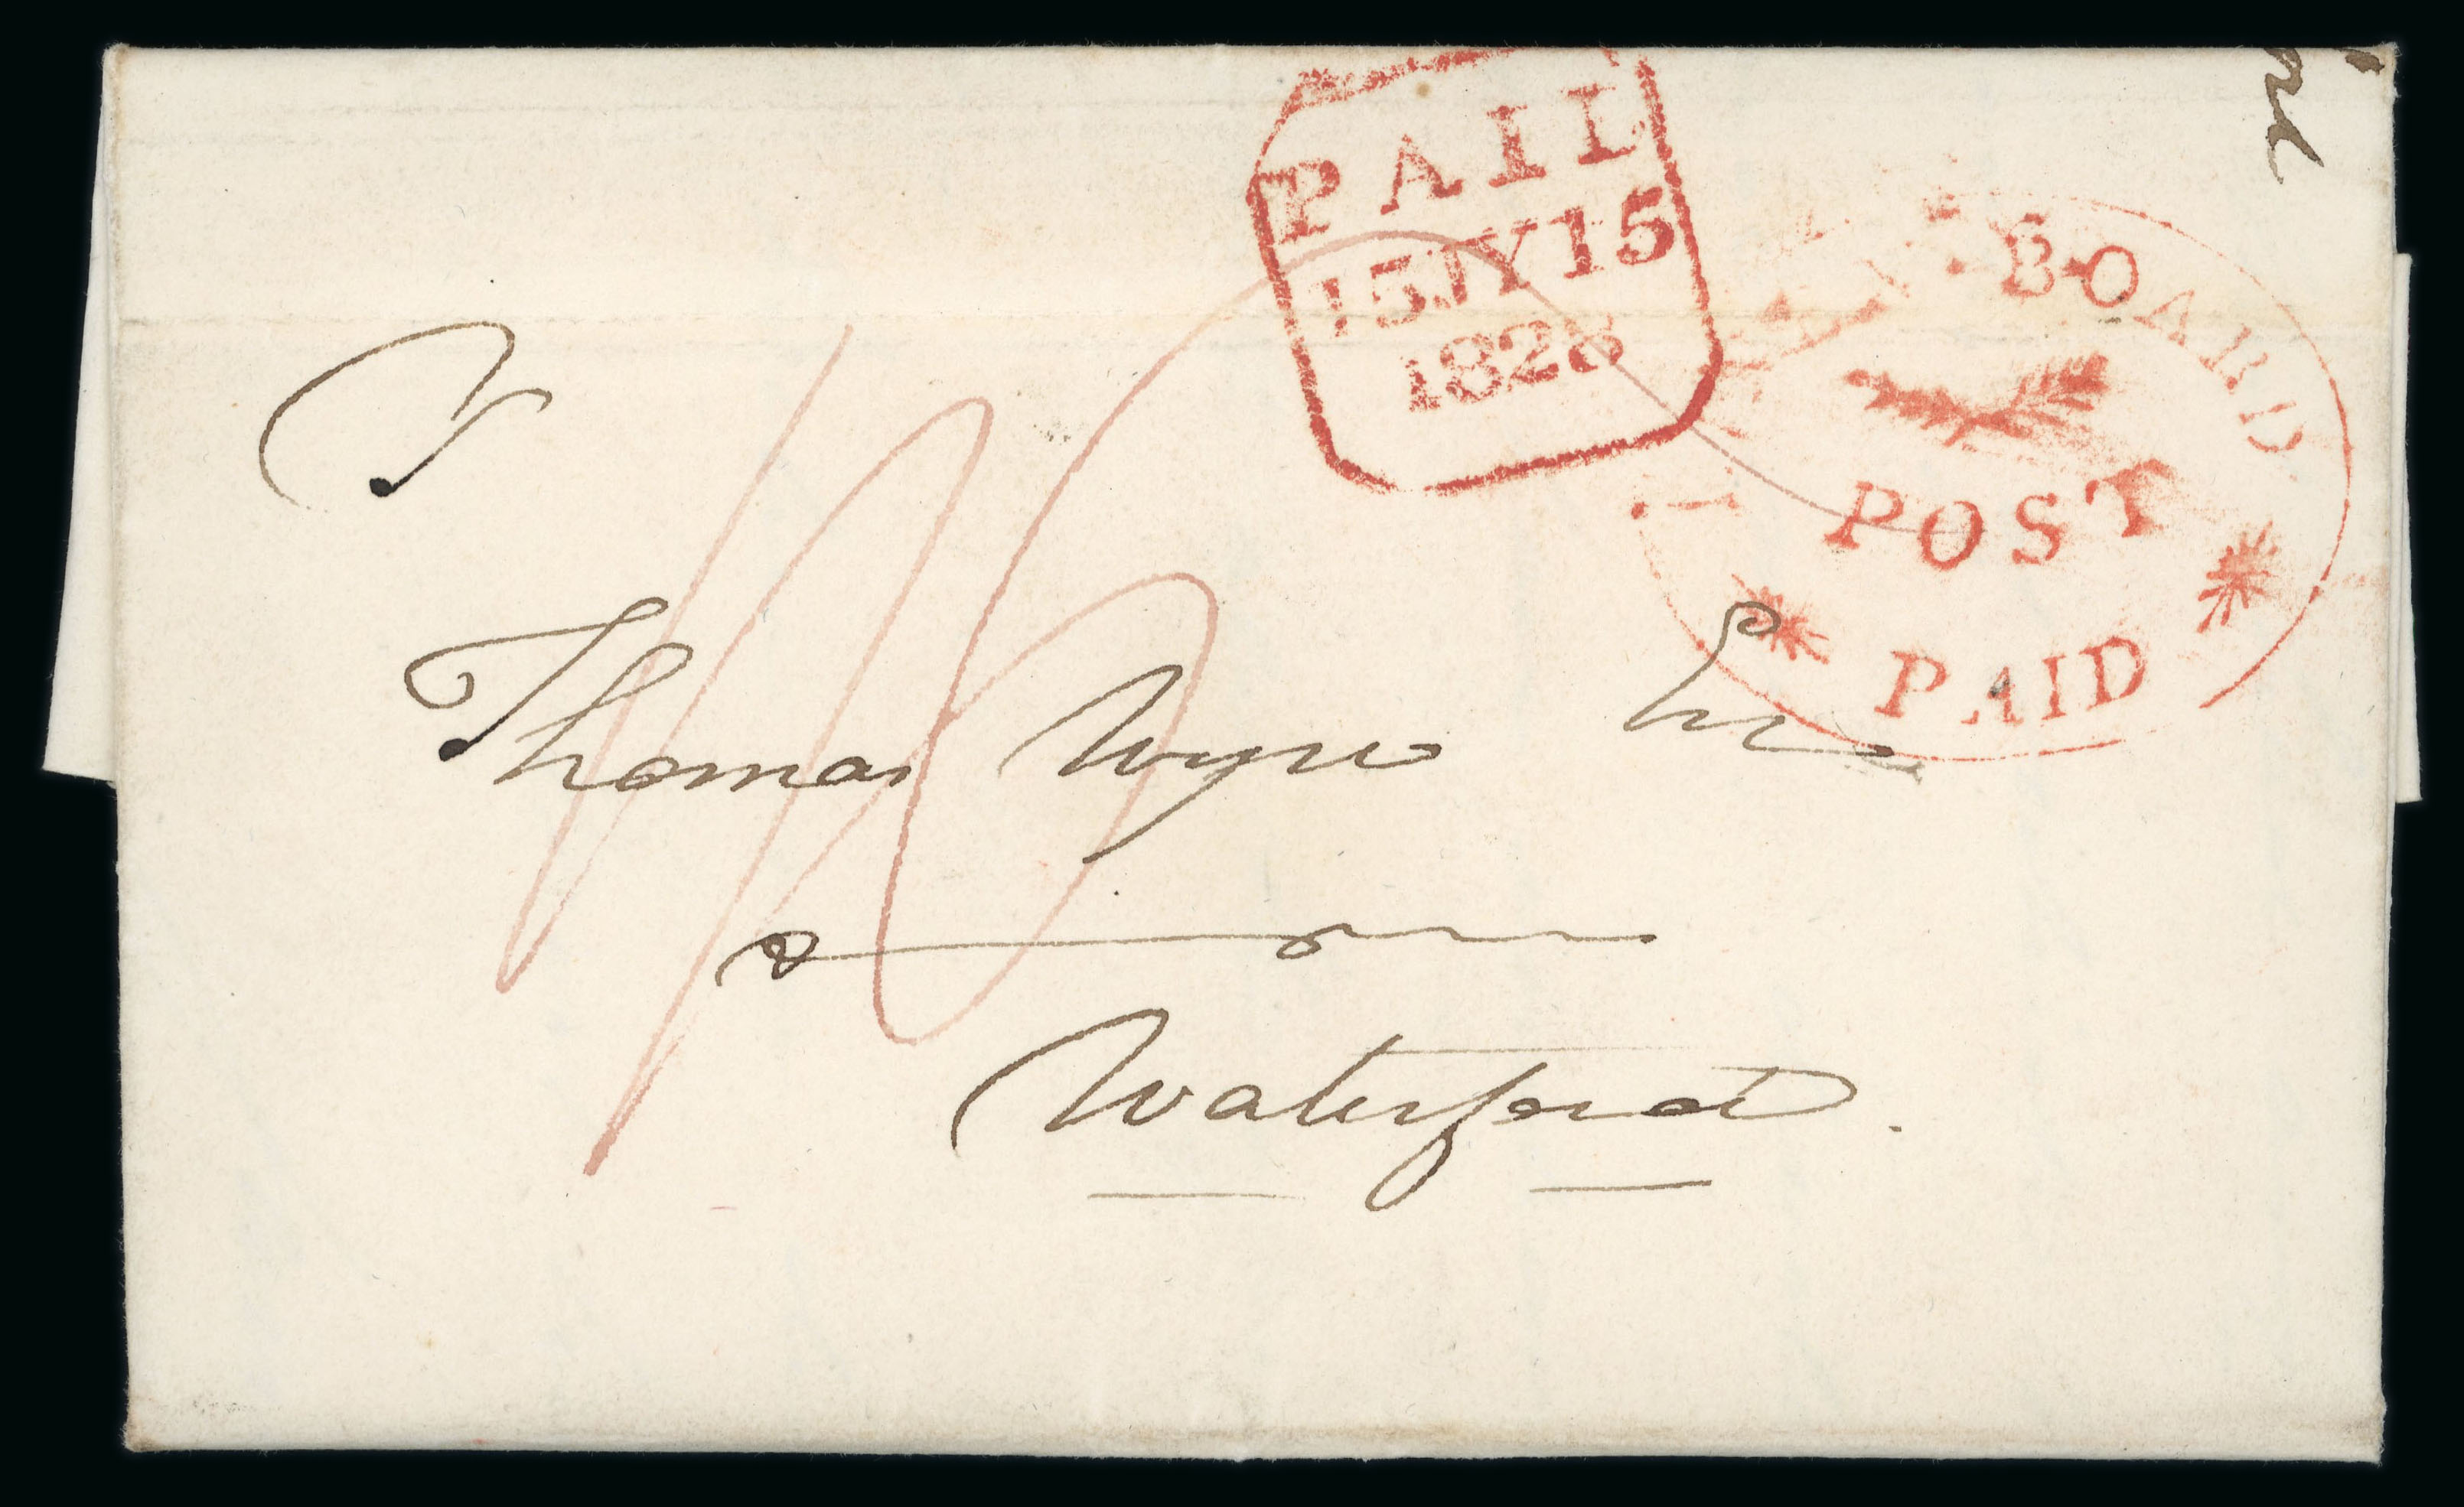 PAID
15JY15
1828
BOARD
POST
PAID
Thomas Wyse
Waterford.